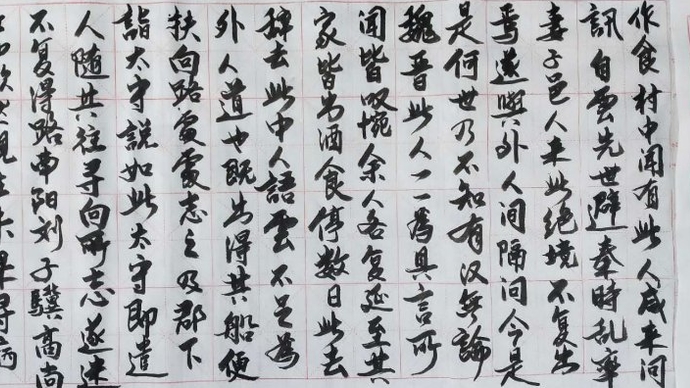 作食村中闻有此人咸来问
訊自雲先世避秦時乱率
妻子邑人来此绝境不复出
焉遂與外人间隔问今是
是何世乃不知有汉無論
魏晋此人一一為具言所
闻皆叹惋余人各复延至其
家皆出酒食停数日此去
辞去此中人語雲不足為
外人道也既出得其船便
扶向路處處志之及郡下
詣太守說如此太守即遣
人随其往寻向所志遂迷
不复得路南阳刘子驥高尚